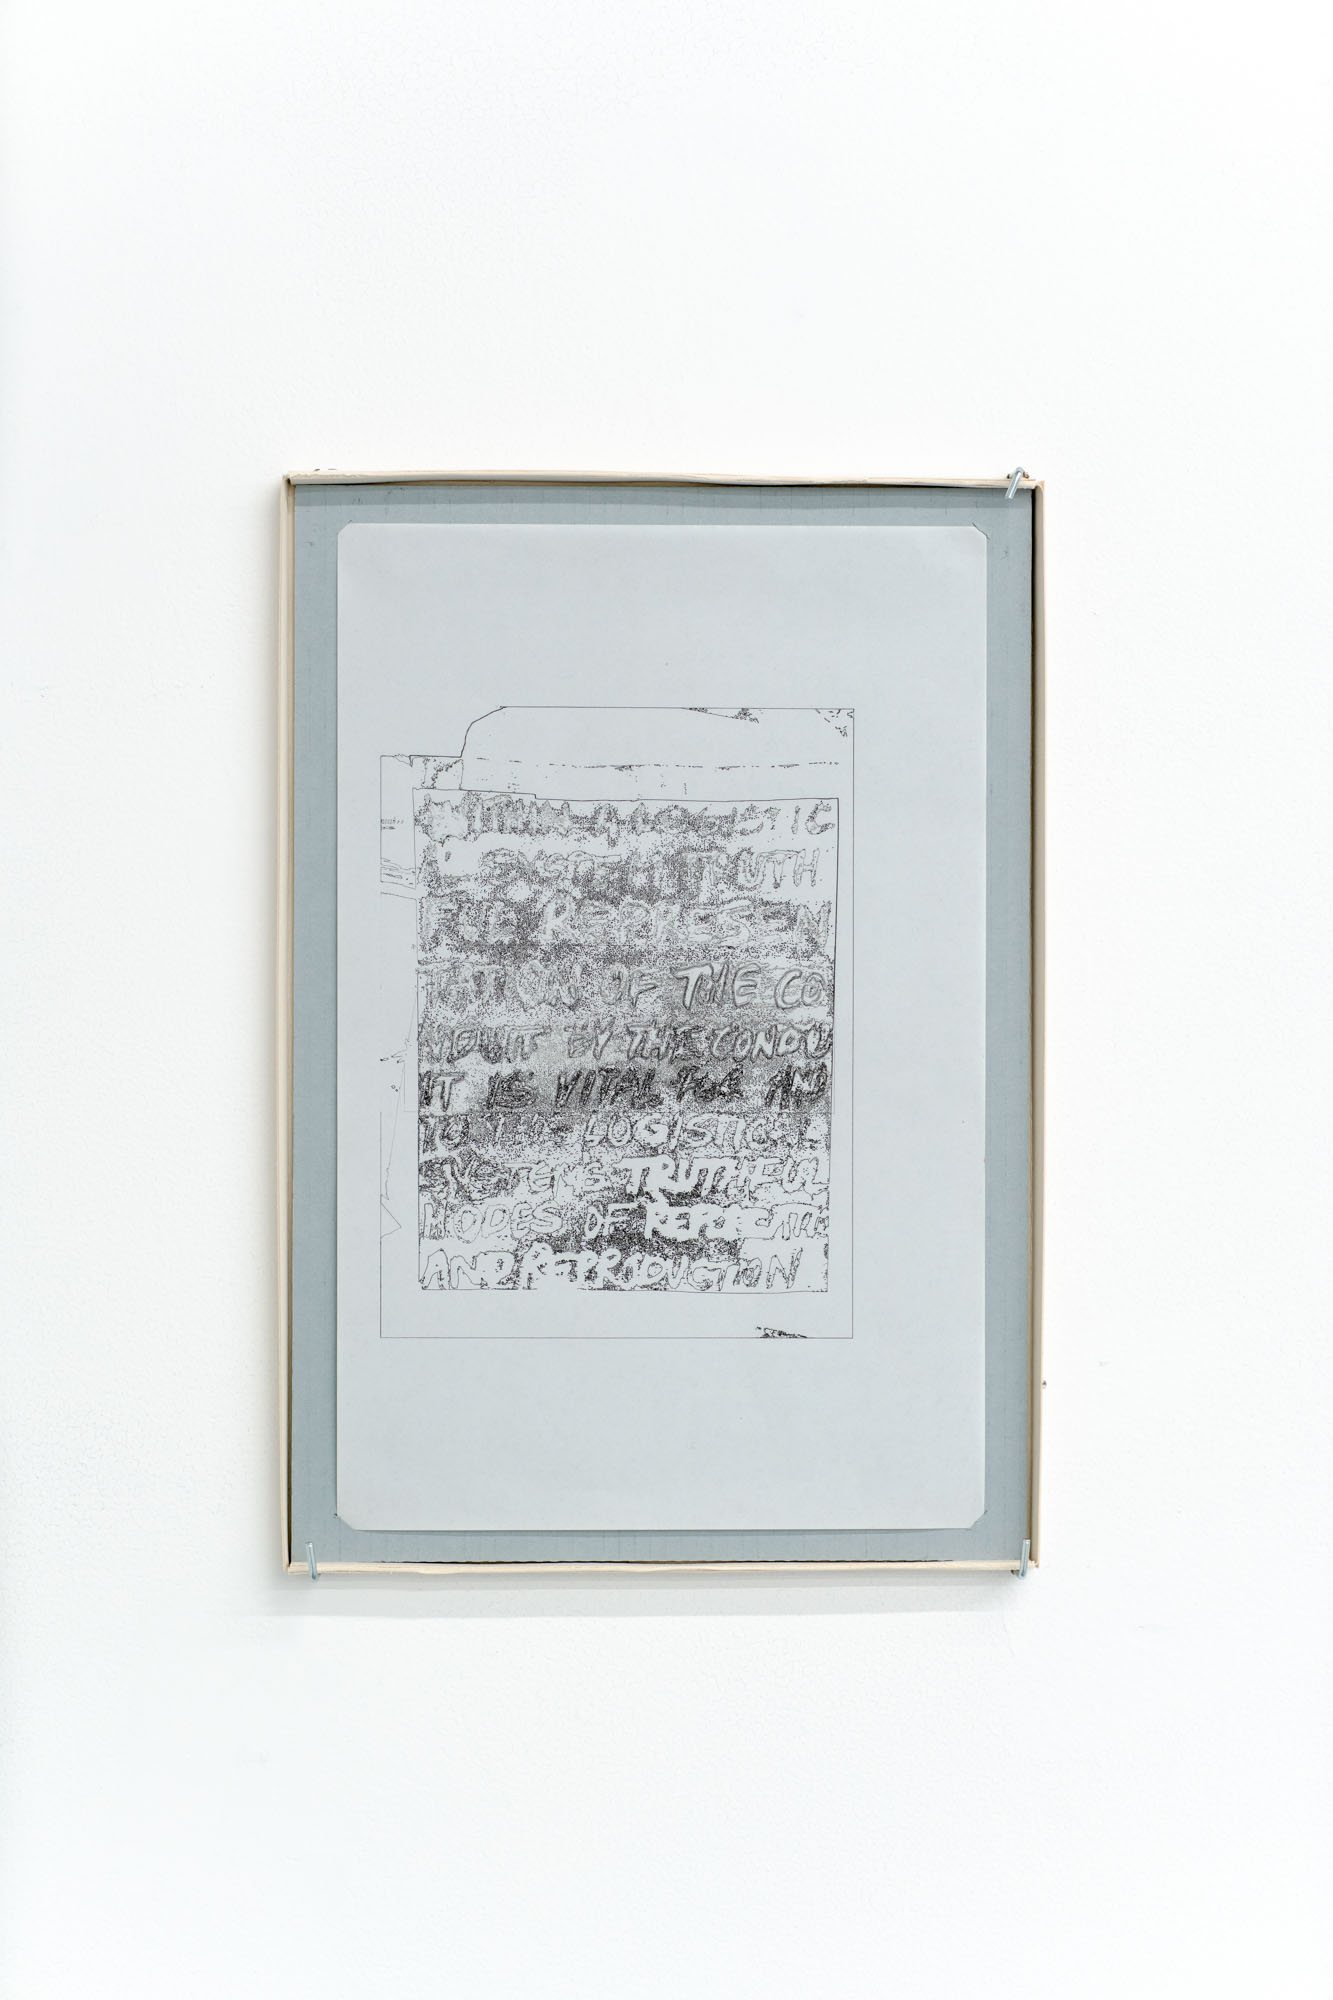 WITHIN A LOGISTIC
AL SYSTEM TRUTH
FUL REPRESEN
TATION OF THE CO
NDUIT BY THE CONDU
IT IS VITAL FOR AND
TO THE LOGISTICAL
SYSTEMS TRUTHFUL
MODES OF REPLICATI
AND REPRODUCTION